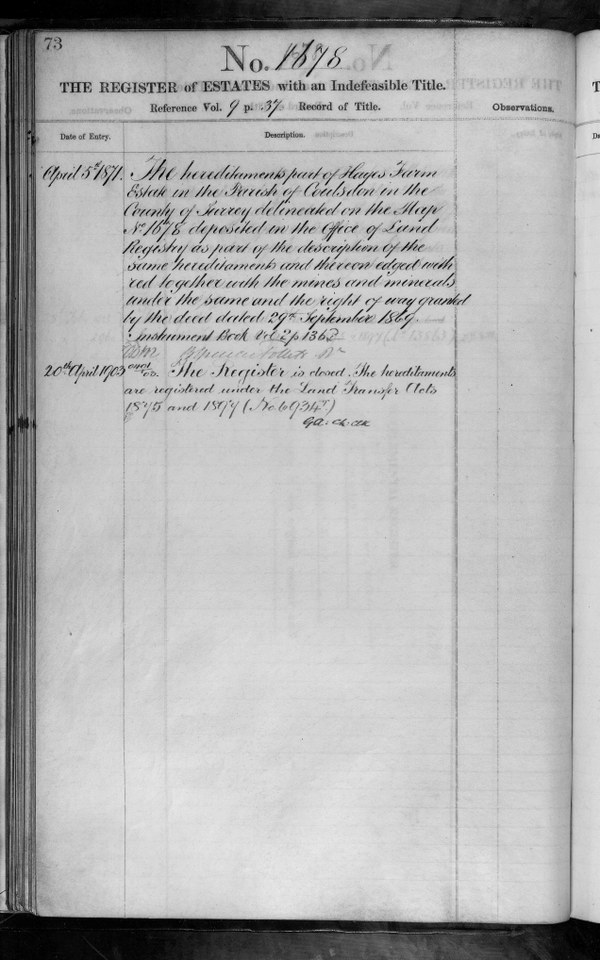 73
No. 1678
THE REGISTER of ESTATES with an Indefeasible Title.
Reference Vol. 9 p. 37 Record of Title.
Observations.
Date of Entry.
Description.
April 5th 1871.
The hereditaments part of Hayes Farm
Estate in the Parish of Coulsdon in the
County of Surrey delineated on the Map
No 1678 deposited in the Office of Land
Registry as part of the description of the
same hereditaments and thereon edged with
red together with the mines and minerals
under the same and the right of way granted
by the deed dated 29th September 1869.
Instrument Book Vol 2 p 1362
20th April 1903
The Register is closed. The hereditaments
are registered under the Land Transfer Acts
1875 and 1897 (No 6934)